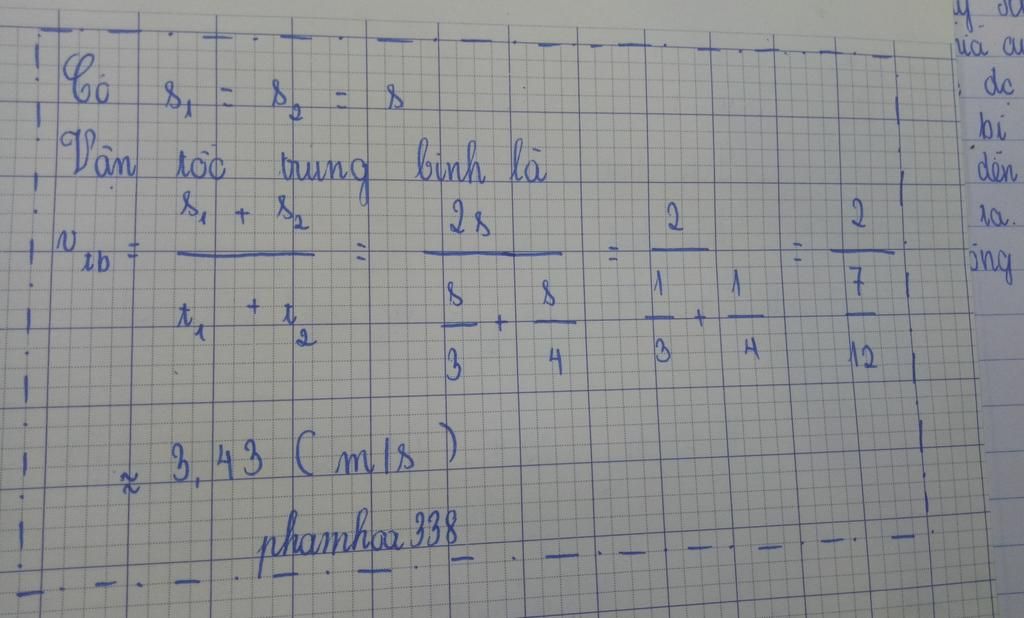 Có s₁ = s₂ = s
Vận tốc trung bình là
v_tb = (s₁ + s₂)/(t₁ + t₂) = 2s/(s/3 + s/4) = 2/(1/3 + 1/4) = 2/(7/12)
≈ 3,43 (m/s)
phamhoa338
dc
bị
đến
ra.